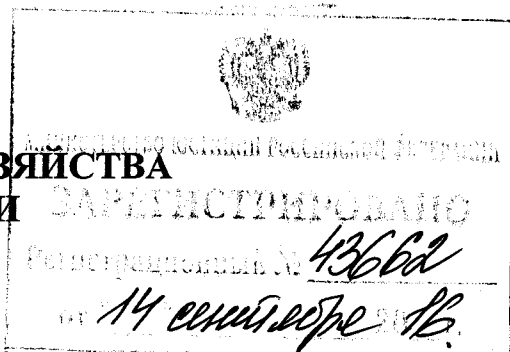 Министерство юстиции Российской Федерации
ЗЯЙСТВА
И
ЗАРЕГИСТРИРОВАНО
Регистрационный № 43662
от 14 сентября 2016.